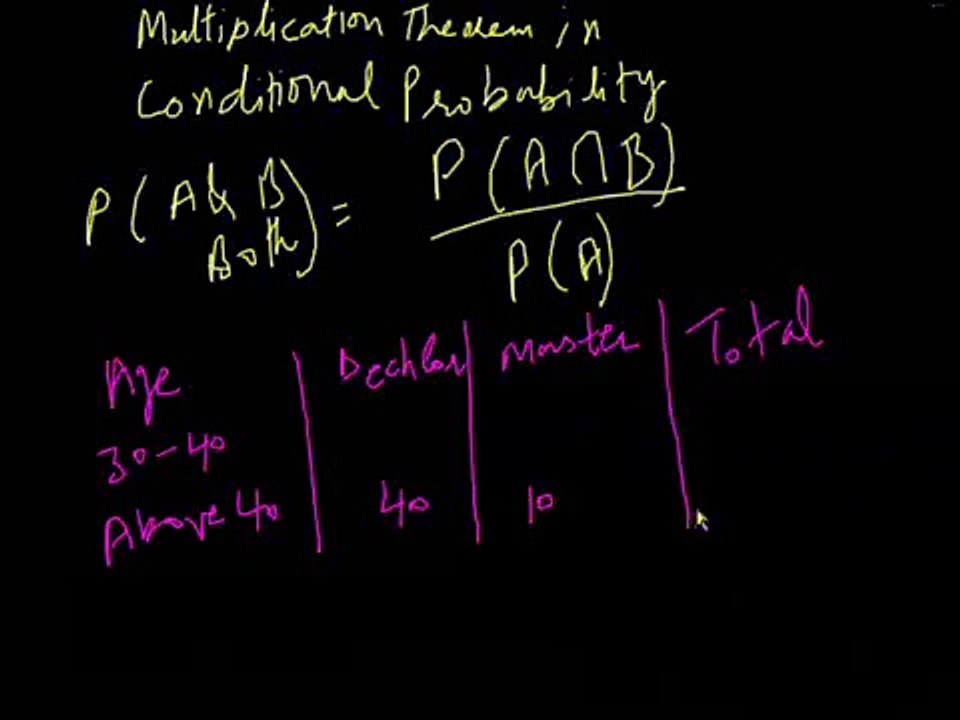 Multiplication Theorem in
Conditional Probability
P(A & B Both) = P(A ∩ B) / P(A)
Age Bechlor Master Total
30-40
Above 40 40 10